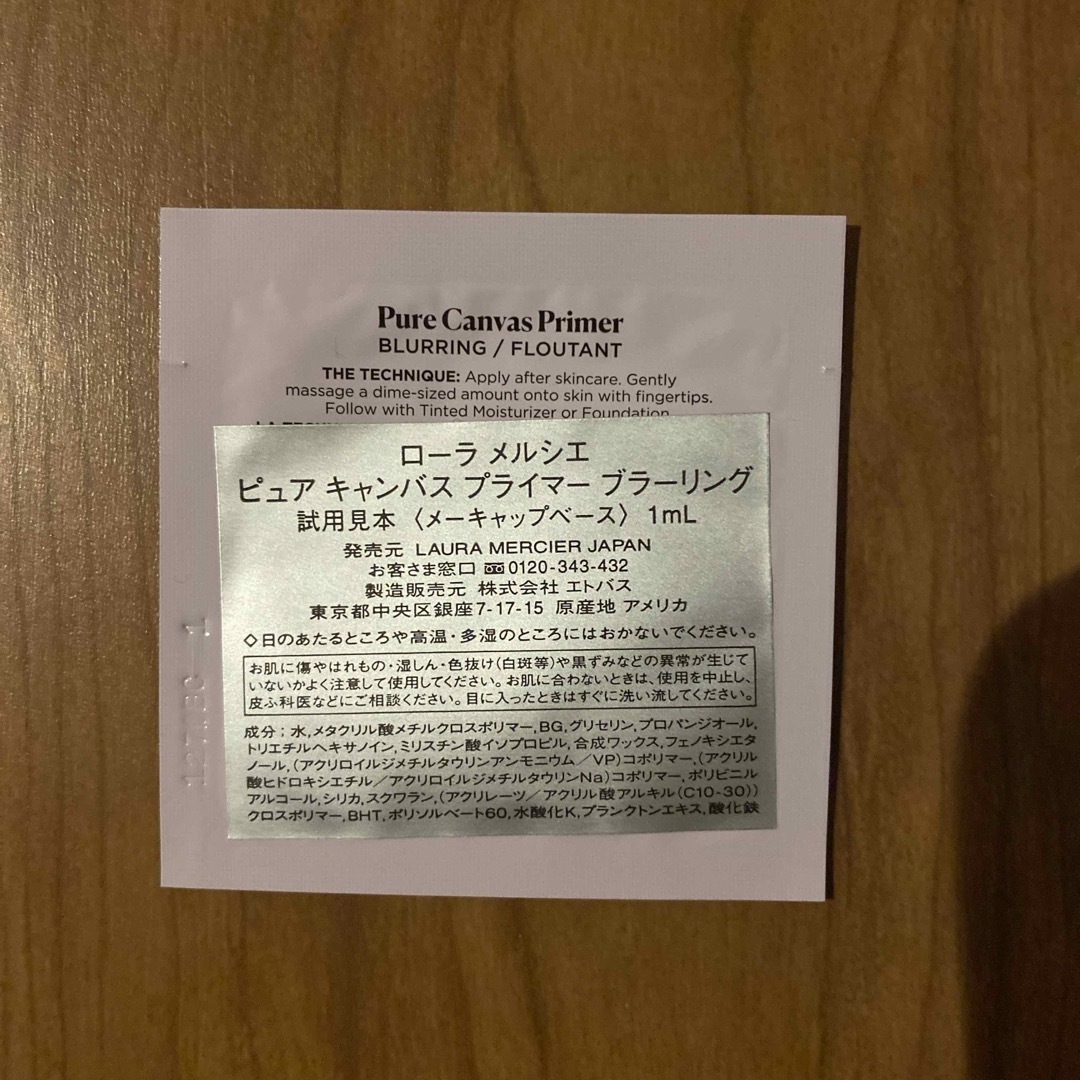 Pure Canvas Primer
BLURRING / FLOUTANT
THE TECHNIQUE: Apply after skincare. Gently
massage a dime-sized amount onto skin with fingertips.
Follow with Tinted Moisturizer or Foundation
ローラ メルシエ
ピュア キャンバス プライマー ブラーリング
試用見本 〈メーキャップベース〉 1mL
発売元 LAURA MERCIER JAPAN
お客さま窓口 0120-343-432
製造販売元 株式会社 エトバス
東京都中央区銀座7-17-15 原産地 アメリカ
◇日のあたるところや高温・多湿のところにはおかないでください。
お肌に傷やはれもの・湿しん・色抜け(白斑等)や黒ずみなどの異常が生じて
いないかよく注意して使用してください。お肌に合わないときは、使用を中止し、
皮ふ科医などにご相談ください。目に入ったときはすぐに洗い流してください。
成分；水,メタクリル酸メチルクロスポリマー,BG,グリセリン,プロパンジオール,
トリエチルヘキサノイン,ミリスチン酸イソプロピル,合成ワックス,フェノキシエタ
ノール,(アクリロイルジメチルタウリンアンモニウム／VP)コポリマー,(アクリル
酸ヒドロキシエチル／アクリロイルジメチルタウリンNa)コポリマー,ポリビニル
アルコール,シリカ,スクワラン,(アクリレーツ／アクリル酸アルキル(C10-30))
クロスポリマー,BHT,ポリソルベート60,水酸化K,プランクトンエキス,酸化鉄